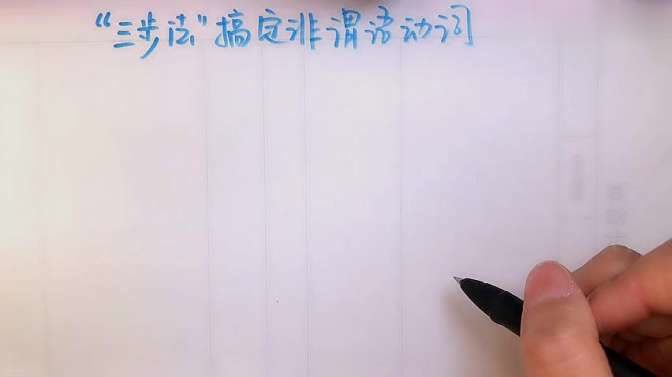 “三步法”搞定非谓语动词